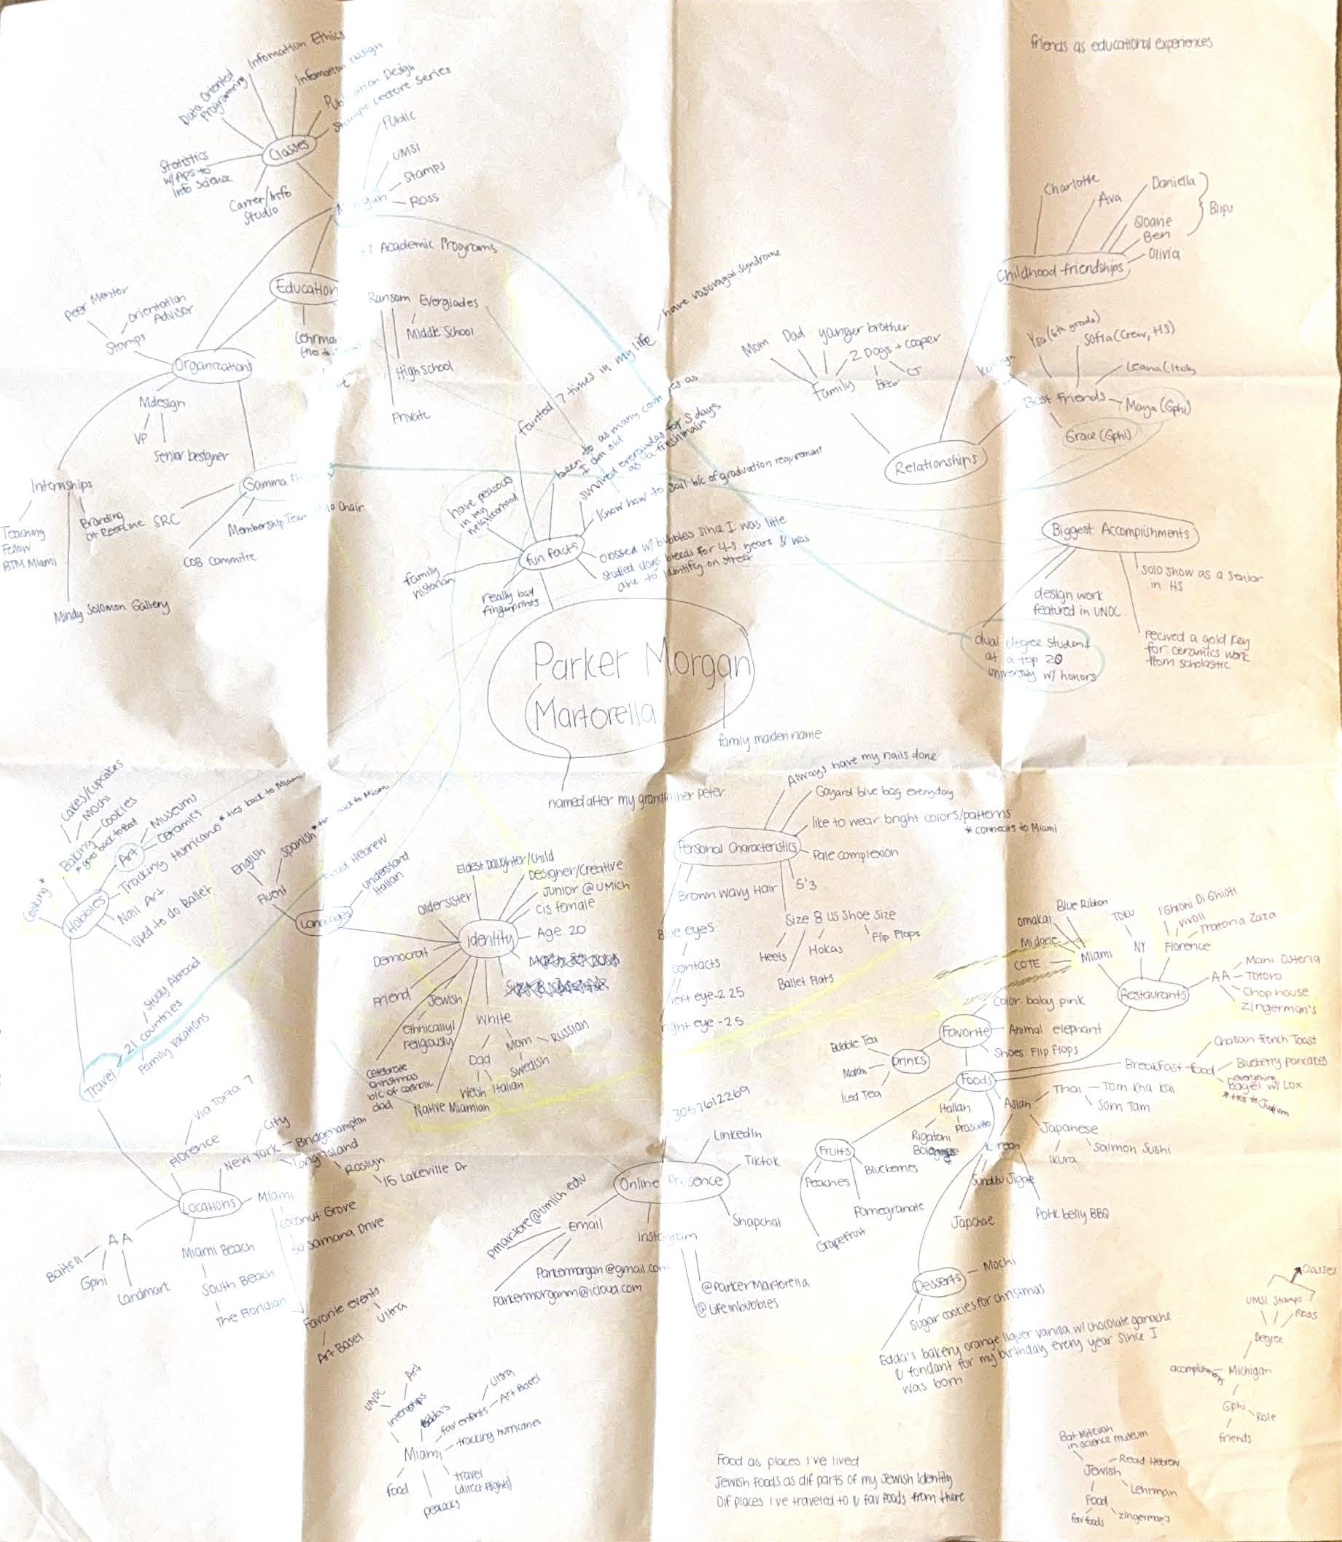 friends as educational experiences
Information Ethics
Information Design
Data Oriented
Programming
Design
Stamps Lecture Series
Classes
Statistics
w/Aps to
Info Science
Carrer/Info
Studio
Public
UMSI
Stamps
ROSS
Academic Programs
Education
Ransom Everglades
Middle School
High school
Private
Peer Mentor
Orientation
Advisor
Stamps
Organizations
Mdesign
VP
Senior Designer
Internships
Teaching
Fellow
BTM Miami
Branding
at Redline
Mindy Solomon Gallery
Gamma
SRC
COB Committe
Membership Team
Chair
fainted 7 times in my life
have vasovagal syndrome
been to as many countries as
I am old
survived everglades for 5 days
as a freshman
Know how to sail b/c of graduation requirement
obssed w/ bubbles since I was little
studied dog breeds for 4-5 years & was
able to identify on street
have peacocks
in my
neighborhood
family
historian
really bad
fingerprints
fun facts
Charlotte
Ava
Daniella
Sloane
Ben
Olivia
Childhood friendships
Mom
Dad
younger brother
2 Dogs + Cooper
Bear
Family
Relationships
Best Friends
Sofia (Crew, HS)
Maya (Gphi)
Grace (Gphi)
Biggest Accomplishments
solo show as a senior
in HS
design work
featured in UNDC
recived a gold key
for ceramics work
from scholastic
dual degree student
at a top 20
university w/ honors
Parker Morgan
(Martorella
family maiden name
named after my grandfather peter
Cakes/cupcakes
Mochi
Cookies
Baking
*goes back to food
Cooking*
Art
Museums
Ceramics
Tracking Hurricanes *ties back to Miami
Nail Art
Used to do Ballet
Hobbies
English
Spanish
Fluent
Hebrew
understand
Italian
Languages
Eldest Daughter/Child
Designer/Creative
Junior @ UMich
cis female
Age 20
Older sister
Identity
Democrat
Friend
Jewish
ethnically/
religiously
celebrate
christmas
b/c of catholic
dad
White
Mom
Russian
Swedish
Dad
Welsh
Italian
Native Miamian
Always have my nails done
Goyard blue bag everyday
like to wear bright colors/patterns
*connects to Miami
Personal Characteristics
Pale complexion
5'3
Brown Wavy Hair
Blue eyes
contacts
left eye -2.25
right eye -2.5
Size 8 US Shoe Size
Heels
Hokas
Flip Flops
Ballet Flats
Study Abroad
21 countries
Family Vacations
Travel
Omakai
Blue Ribbon
Midorie
COTE
Miami
NY
Vivoli
Trattoria Zaza
Florence
Restaurants
AA
Mani Osteria
Tototo
Chop house
Zingerman's
Favorite
Color baby pink
Animal elephant
Shoes: Flip Flops
Foods
Drinks
Bubble Tea
Iced Tea
Breakfast food
Challah French Toast
Blueberry Pancakes
everything
Bagel w/ Lox
Asian
Thai
Tom Kha Kai
Som Tam
Japanese
Ikura
Salmon Sushi
Korean
Japchae
Pork belly BBQ
Italian
Rigatoni
Prosciutto
Fruits
Peaches
Blueberries
Pomegranate
Grapefruit
Desserts
Mochi
Sugar cookies for christmas
Edda's bakery orange liquer vanilla w/ chocolate ganache
& fondant for my birthday every year since I
was born
Florence
Via Torta 7
New York
City
Bridgehampton
Long Island
Roslyn
15 Lakeville Dr
Locations
Miami
Coconut Grove
50 Samana Drive
Miami Beach
South Beach
The Floridian
AA
Gphi
Landmark
3057612269
LinkedIn
Tiktok
Snapchat
Online Presence
Email
Parkermorgan@gmail.com
Parkermorganm@icloud.com
Instagram
@ParkerMartorella
@Lifeinbubbles
Favorite events
Ultra
Art Basel
UNDC
Art
Internships
Edda's
fav events
Ultra
Art Basel
Miami
tracking hurricanes
travel
(direct flights)
peacocks
food
Food as places I've lived
Jewish foods as dif parts of my Jewish Identity
Dif places I've traveled to & fav foods from there
Classes
UMSI
Stamps
Ross
Degree
Michigan
Gphi
Role
friends
Bat Mitzvah
in science museum
Read Hebrew
Jewish
Lehrman
Food
fav foods
Zingerman's